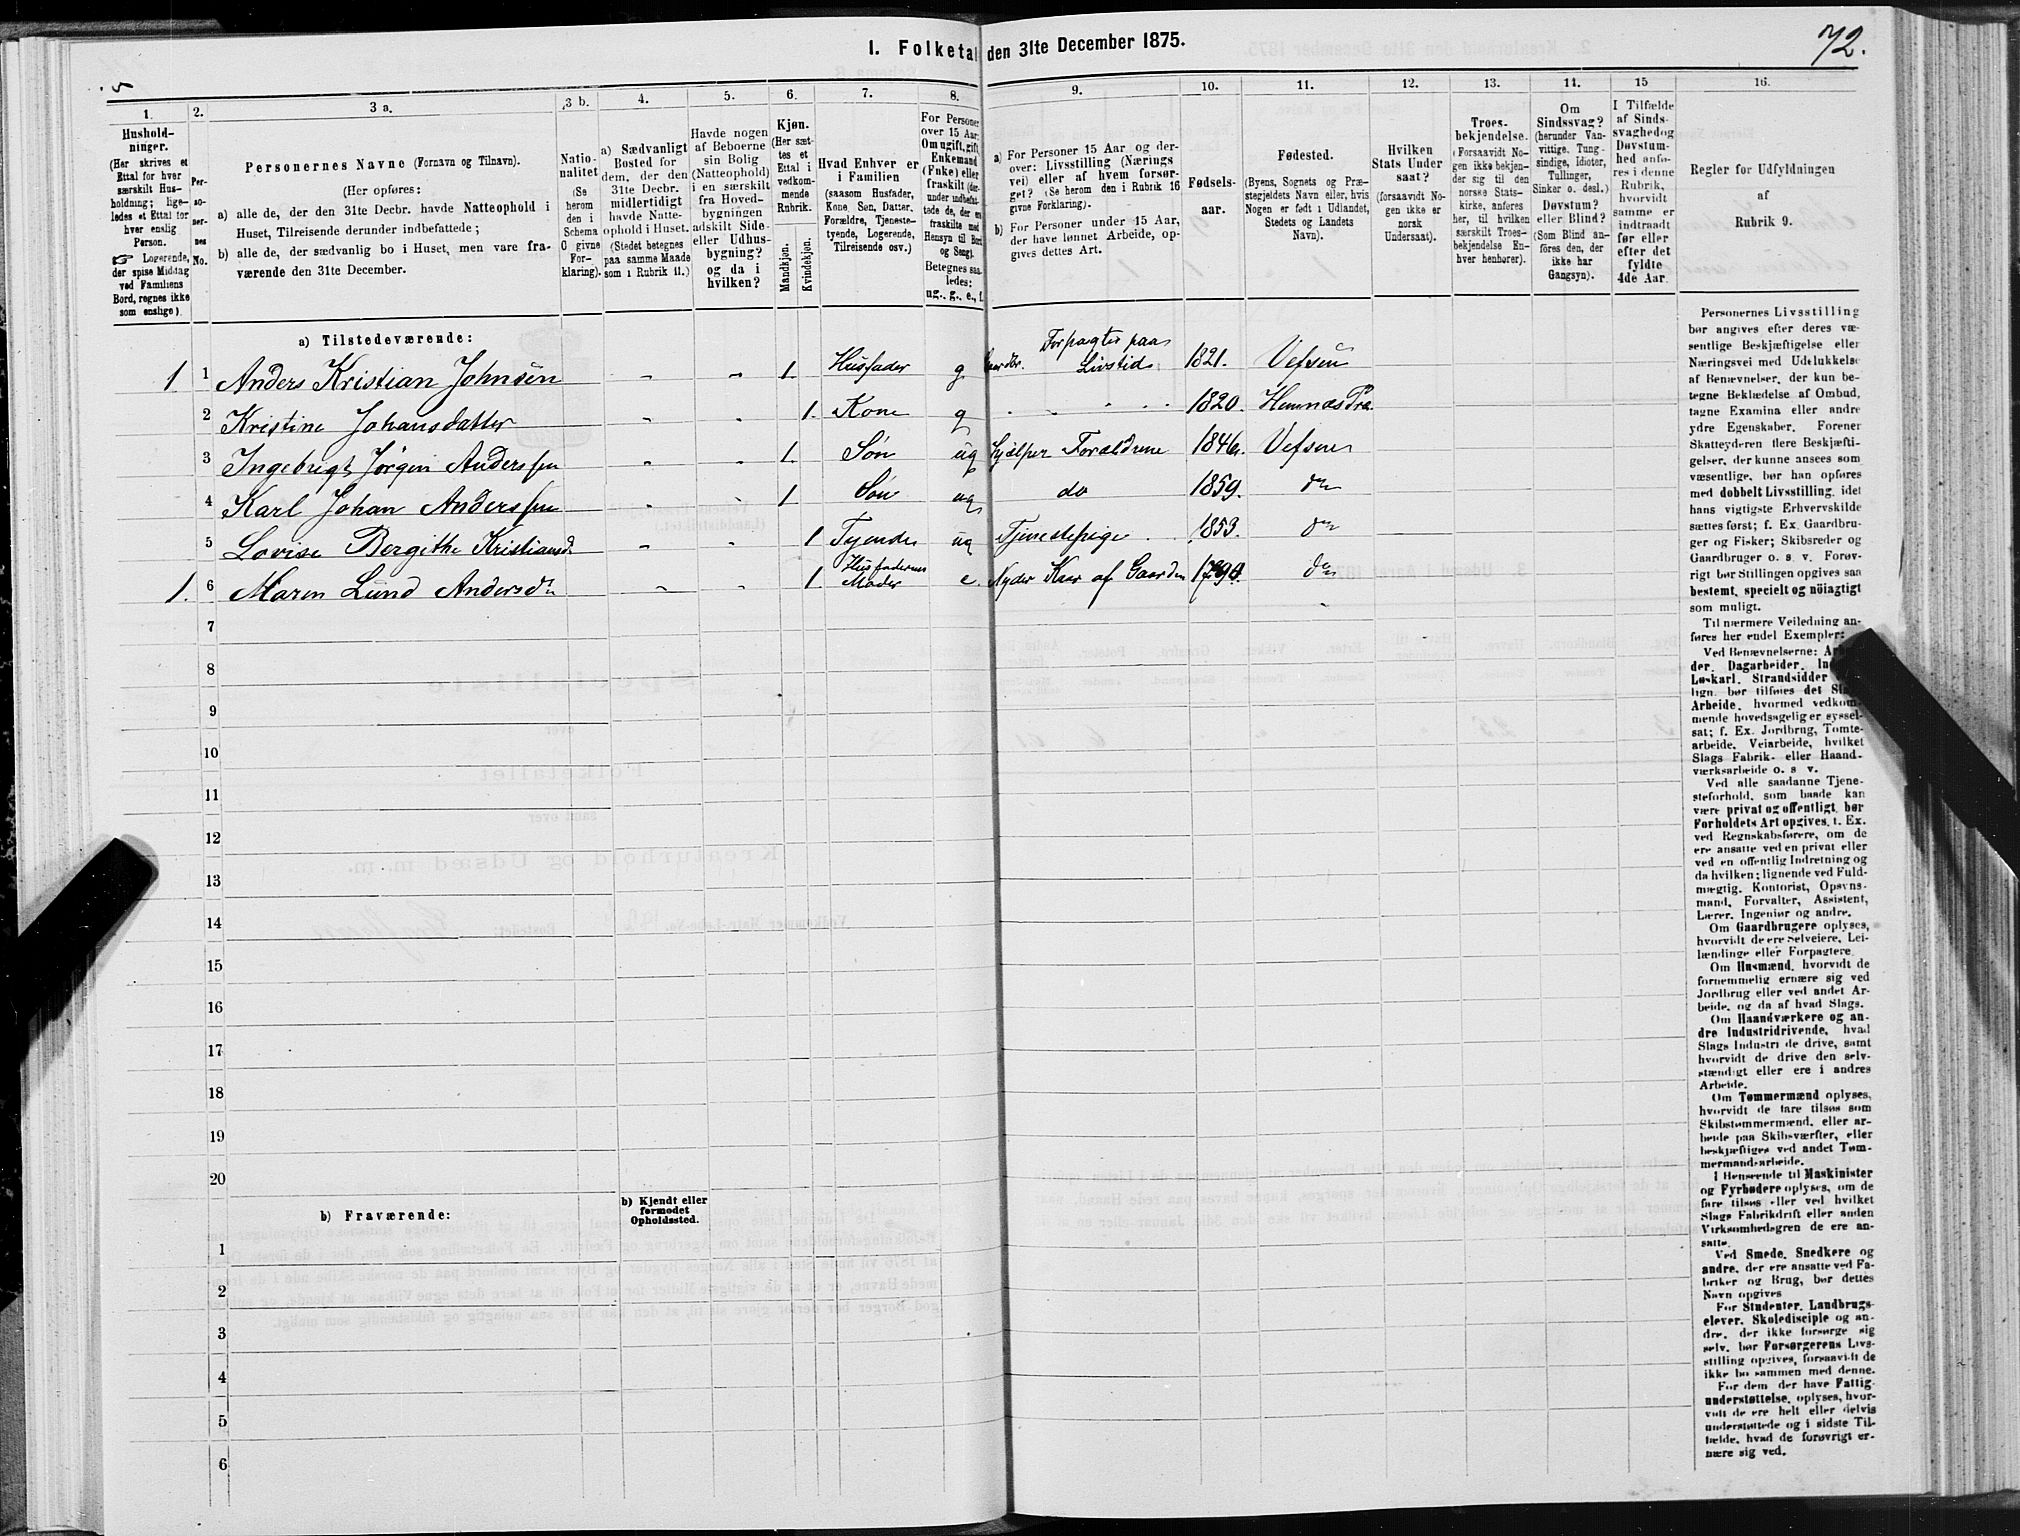 72.
5
I. Folketal den 31te December 1875.
1.
Hushold-
ninger.
(Her skrives et
Ettal for hver
særskilt Hus-
holdning; lige-
ledes et Ettal for
hver enslig
Person.
☞ Logerende,
der spise Middag
ved Familiens
Bord, regnes ikke
som enslige).
2.
Per-
so-
ner-
nes
No.
3 a.
Personernes Navne (Fornavn og Tilnavn).
(Her opføres:
a) alle de, der den 31te Decbr. havde Natteophold i
Huset, Tilreisende derunder indbefattede;
b) alle de, der sædvanlig bo i Huset, men vare fra-
værende den 31te December.
3 b.
Natio-
nalitet
(Se
herom
den i
Schema
C givne
For-
klaring).
4.
a) Sædvanligt
Bosted for
dem, der den
31te Decbr.
midlertidigt
havde Natte-
ophold i Huset.
(Stedet betegnes
paa samme Maade
som i Rubrik 11.)
5.
Havde nogen
af Beboerne
sin Bolig
(Natteophold)
i en særskilt
fra Hoved-
bygningen
adskilt Side-
eller Udhus-
bygning?
og da i
hvilken?
6.
Kjøn.
(Her sæt-
tes et
Ettal i
vedkom-
mende
Rubrik.
Mandkjøn.
Kvindekjøn.
7.
Hvad Enhver er
i Familien
(saasom Husfader,
Kone, Søn, Datter,
Forældre, Tjeneste-
tyende, Logerende,
Tilreisende osv.)
8.
For Personer
over 15 Aar:
Om ugift, gift,
Enkemand
(Enke) eller
fraskilt (der-
under indbefat-
tede de, der er
fraskilte med
Hensyn til Bord
og Seng).
Betegnes saa-
ledes:
ug., g., e., f.
9.
a) For Personer 15 Aar og der-
over: Livsstilling (Nærings
vei) eller af hvem forsør-
get? (Se herom den i Rubrik 16
givne Forklaring).
b) For Personer under 15 Aar,
der have lønnet Arbeide, op-
gives dettes Art.
10.
Fødsels-
aar.
11.
Fødested.
(Byens, Sognets og Præ-
stegjeldets Navn eller, hvis
Nogen er født i Udlandet,
Stedets og Landets
Navn).
12.
Hvilken
Stats Under
saat?
(forsaavidt No-
gen ikke er
norsk
Undersaat).
13.
Troes-
bekjendelse.
(Forsaavidt No-
gen ikke bekjen-
der sig til den
norske Stats-
kirke, anføres
her, til hvilken
særskilt Troes-
bekjendelse En-
hver henhører).
14.
Om
Sindssvag?
(herunder Van-
vittige, Tung-
sindige, Idioter,
Tullinger,
Sinker o. desl.)
Døvstum?
eller Blind?
(Som Blind an-
føres den, der
ikke har
Gangsyn).
15
I Tilfælde
af Sinds-
svaghed og
Døvstum-
hed anfø-
res i denne
Rubrik,
hvorvidt
samme er
indtraadt
før eller
efter det
fyldte
4de Aar.
16.
Regler for Udfyldningen
af
Rubrik 9.
a) Tilstedeværende:
1 1 Anders Kristian Johnsen 1. Husfader g Gaardbr. Forpagter paa Livstid 1821. Vefsen
2 Kristine Johansdatter 1. Kone g 1820. Hemnæs Præ.
3 Ingebrigt Jørgen Anderssen 1. Søn ug hjælper Forældrene 1846. Vefsen
4 Karl Johan Anderssen 1 Søn ug do 1859. do
5 Lovise Bergithe Kristiansd. 1 Tjende ug Tjenestepige 1853. do
1. 6 Maren Lund Andersdn 1 Husfaderens Moder e. Nyder Kaar af Gaarden 1790. do
7
8
9
10
11
12
13
14
15
16
17
18
19
20
b) Fraværende:
b) Kjendt eller
formodet
Opholdssted.
1
2
3
4
5
6
Personernes Livsstilling
bør angives efter deres væ-
sentlige Beskjæftigelse eller
Næringsvei med Udelukkelse
af Benævnelser, der kun be-
tegne Beklædelse af Ombud,
tagne Examina eller andre
ydre Egenskaber. Forener
Skatteyderen flere Beskjæfti-
gelser, der kunne ansees som
væsentlige, bør han opføres
med dobbelt Livsstilling, idet
hans vigtigste Erhvervskilde
sættes først; f. Ex. Gaardbru-
ger og Fisker; Skibsreder og
Gaardbruger o. s. v. Forøv-
rigt bør Stillingen opgives saa
bestemt, specielt og nøiagtigt
som muligt.
Til nærmere Veiledning an-
føres her endel Exempler:
Ved Benævnelserne:
der, Dagarbeider,
Løskarl, Strandsidder
lign. bør tilføies det
Arbeide, hvormed vedkom-
mende hovedsagelig er syssel-
sat; f. Ex. Jordbrug, Tomte-
arbeide, Veiarbeide, hvilket
Slags Fabrik- eller Haand-
værksarbeide o. s v.
Ved alle saadanne Tjene-
steforhold, som baade kan
være privat og offentligt, bør
Forholdets Art opgives, t. Ex.
ved Regnskabsførere, om de
ere ansatte ved en privat eller
ved en offentlig Indretning og
da hvilken; lignende ved Fuld-
mægtig, Kontorist, Opsyns-
mand, Forvalter, Assistent,
Lærer, Ingeniør og andre.
Om Gaardbrugere oplyses,
hvorvidt de ere Selveiere, Lei-
lændinge eller Forpagtere.
Om Husmænd, hvorvidt de
fornemmelig ernære sig ved
Jordbrug eller ved andet Ar-
beide, og da af hvad Slags.
Om Haandværkere og an-
dre Industridrivende, hvad
Slags Industri de drive, samt
hvorvidt de drive den selv-
stændigt eller ere i andres
Arbeide.
Om Tømmermænd oplyses,
hvorvidt de fare tilsøs som
Skibstømmermænd, eller ar-
beide paa Skibsværfter, eller
beskjæftiges ved andet Tøm-
mermandsarbeide.
I Henseende til Maskinister
og Fyrbødere oplyses, om de
fare tilsøs eller ved hvilket
Slags Fabrikdrift eller anden
Virksomhedsgren de ere an-
satte.
Ved Smede, Snedkere og
andre, der ere ansatte ved Fa-
briker og Brug, bør dettes
Navn opgives
For Studenter, Landbrugs-
elever, Skoledisciple og an-
dre, der ikke forsørge sig
selv, bør Forsørgerens Livs-
stilling opgives, forsaavidt de
ikke bo sammen med denne.
For dem, der have Fattig-
understøttelse, oplyses, hvor-
vidt de ere helt eller delvis
understøttede og i sidste Til-
fælde, hvad de forøvrigt er-
nære sig ved.